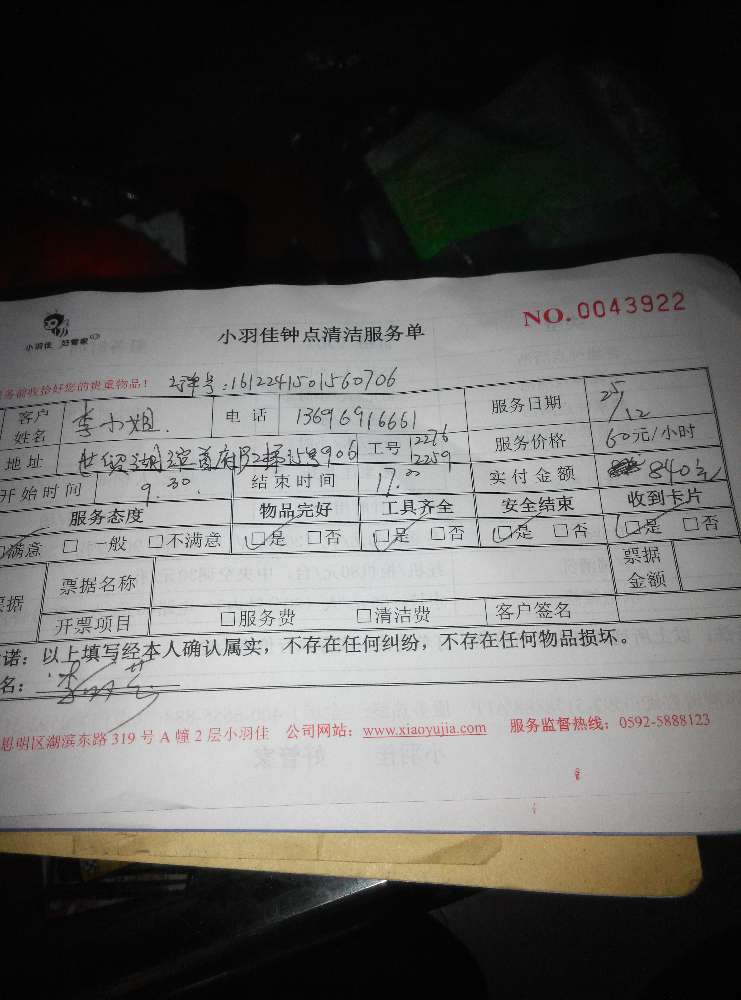 小羽佳 好管家
小羽佳钟点清洁服务单
NO.0043922
务前收拾好您的贵重物品!
单号:1612241501560706
客户姓名 李小姐. 电话 13696916661 服务日期 25/12
地址 世贸湖滨首府 906 工号 12276 12259 服务价格 60元/小时
开始时间 9.30. 结束时间 17.00 实付金额 840元
服务态度 物品完好 工具齐全 安全结束 收到卡片
满意 □ 一般 □不满意 □是 □否 □是 □否 □是 □否 □是 □否
票据 票据名称 票据金额
开票项目 □服务费 □清洁费 客户签名
诺:以上填写经本人确认属实,不存在任何纠纷,不存在任何物品损坏。
名:
思明区湖滨东路 319 号 A 幢 2 层小羽佳 公司网站:www.xiaoyujia.com 服务监督热线:0592-5888123